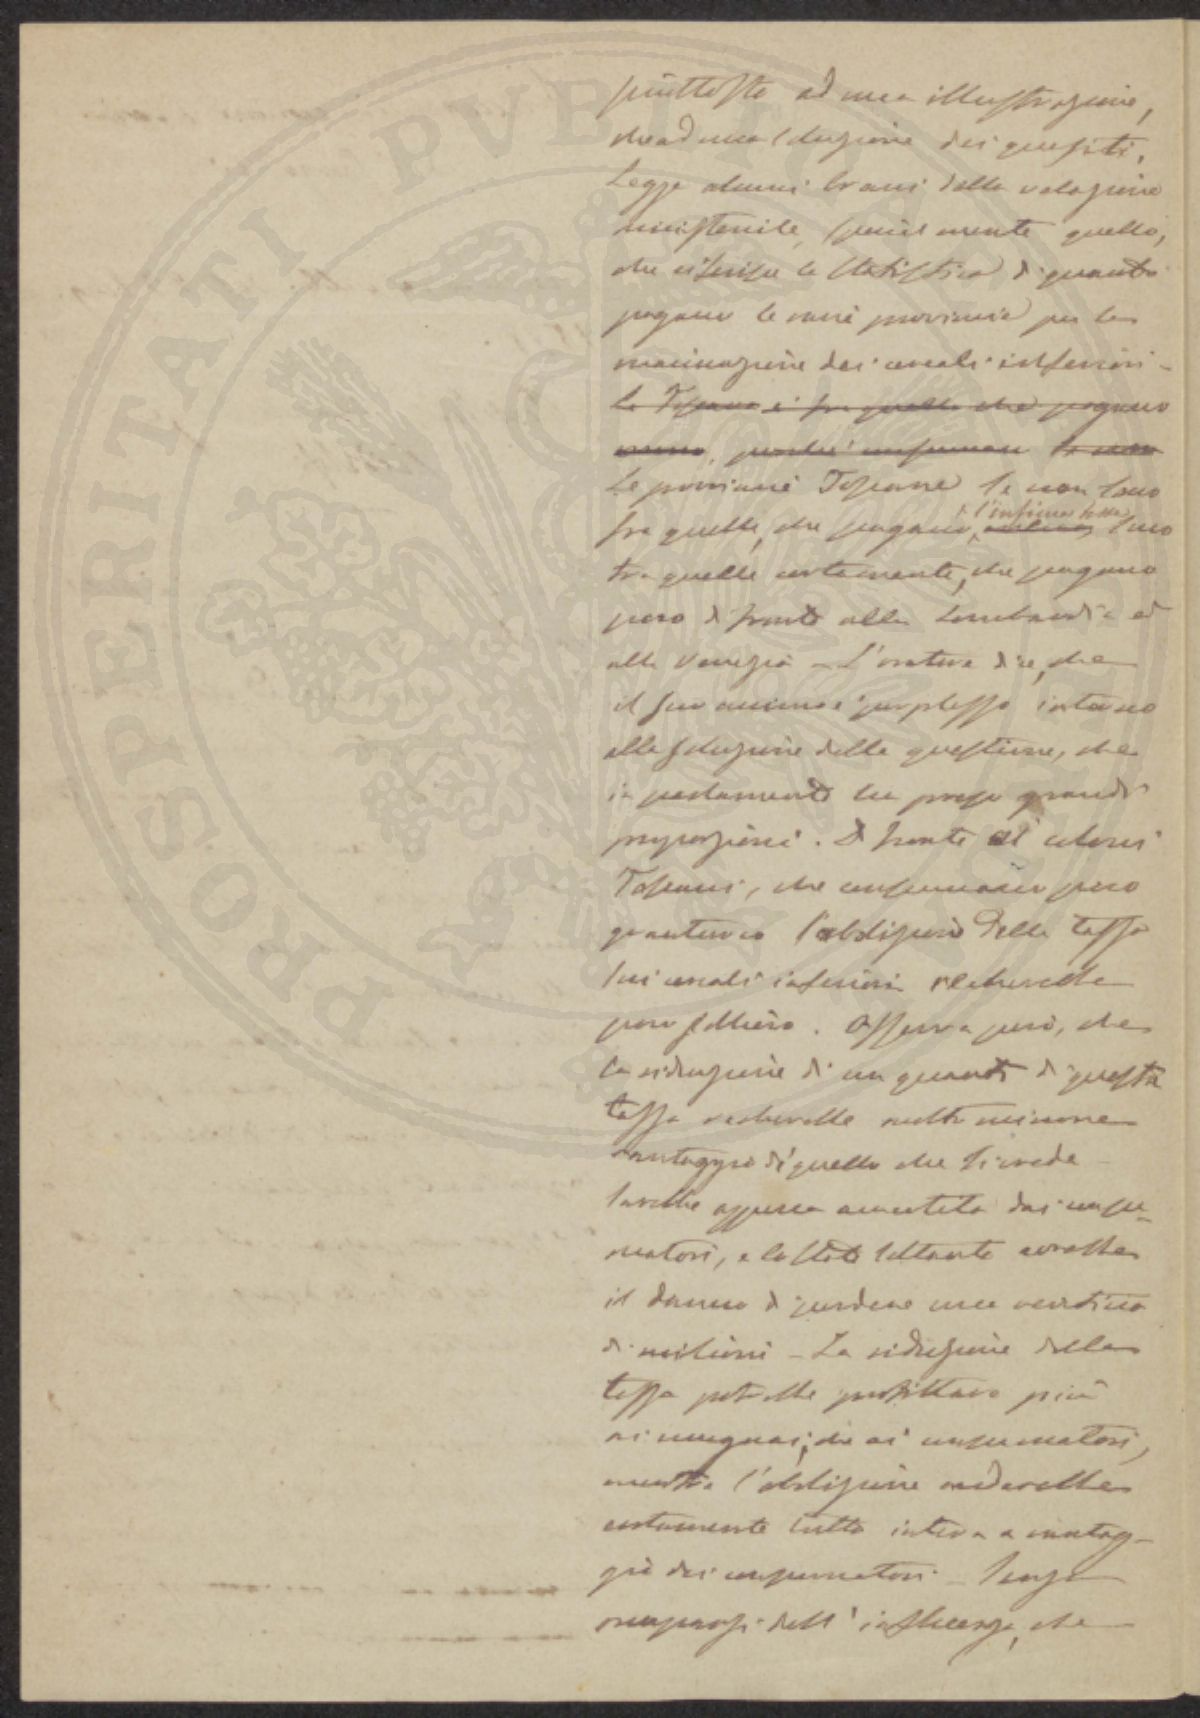 piuttosto ad una illustrazione,
che ad una soluzione dei quesiti.
Legge alcuni brani della relazione
ministeriale, specialmente quello,
che riferisce la statistica di quanto
pagano le varie provincie per la
macinazione dei cereali inferiori -
La Toscana è fra quelle che pagano
meno, perché consumano
Le provincie Toscane se non sono
fra quelle, che pagano l'infima tassa sono
tra quelle certamente, che pagano
poco di fronte alla Lombardia ed
alla Venezia - L'oratore dice, che
il suo animo è perplesso intorno
alla soluzione della questione, che
in parlamento ha preso grandi
proporzioni. Di fronte ai coloni
Toscani, che consumano poco
granturco l'abolizione della tassa
sui cereali inferiori recherebbe
poco sollievo. Osserva però, che
la riduzione di un quarto di questa
tassa recherebbe molto minore
vantaggio di quello che si crede -
Sarebbe appena avvertita dai consu=
matori, e lo Stato soltanto avrebbe
il danno di perdere una ventina
di milioni - La riduzione della
tassa potrebbe profittare più
ai mugnai, che ai consumatori,
mentre l'abolizione andrebbe
certamente tutta intera a vantag-
gio dei consumatori - Senza
preoccuparsi dell'influenza, che
PROSPERITATI PVBLICAE